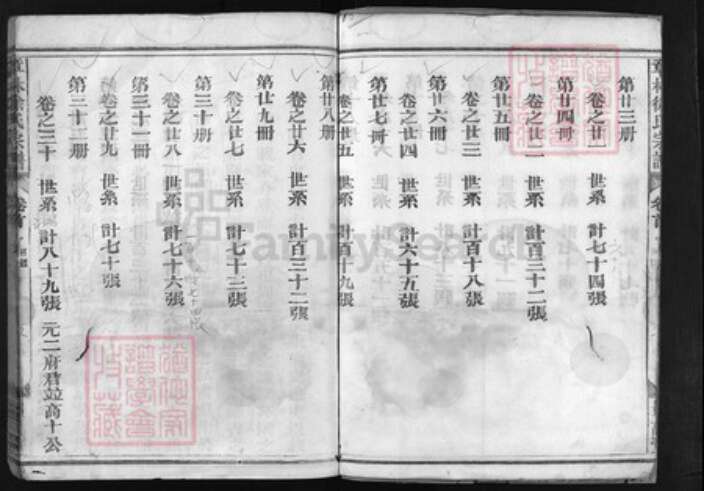 第廿三冊
卷之廿一 世系 計七十四張
第廿四冊
卷之廿二 世系 計百三十二張
第廿五冊
卷之廿三 世系 計百十八張
第廿六冊
卷之廿四 世系 計六十五張
第廿七冊
卷之廿五 世系 計百十九張
第廿八冊
卷之廿六 世系 計百三十一張
第廿九冊
卷之廿七 世系 計七十三張
第三十冊
卷之廿八 世系 計七十六張
第三十一冊
卷之廿九 世系 計七十張
第三十二冊
卷之三十 世系 計八十九張 元二府君並高十公
徐氏宗譜 卷首
FamilySearch